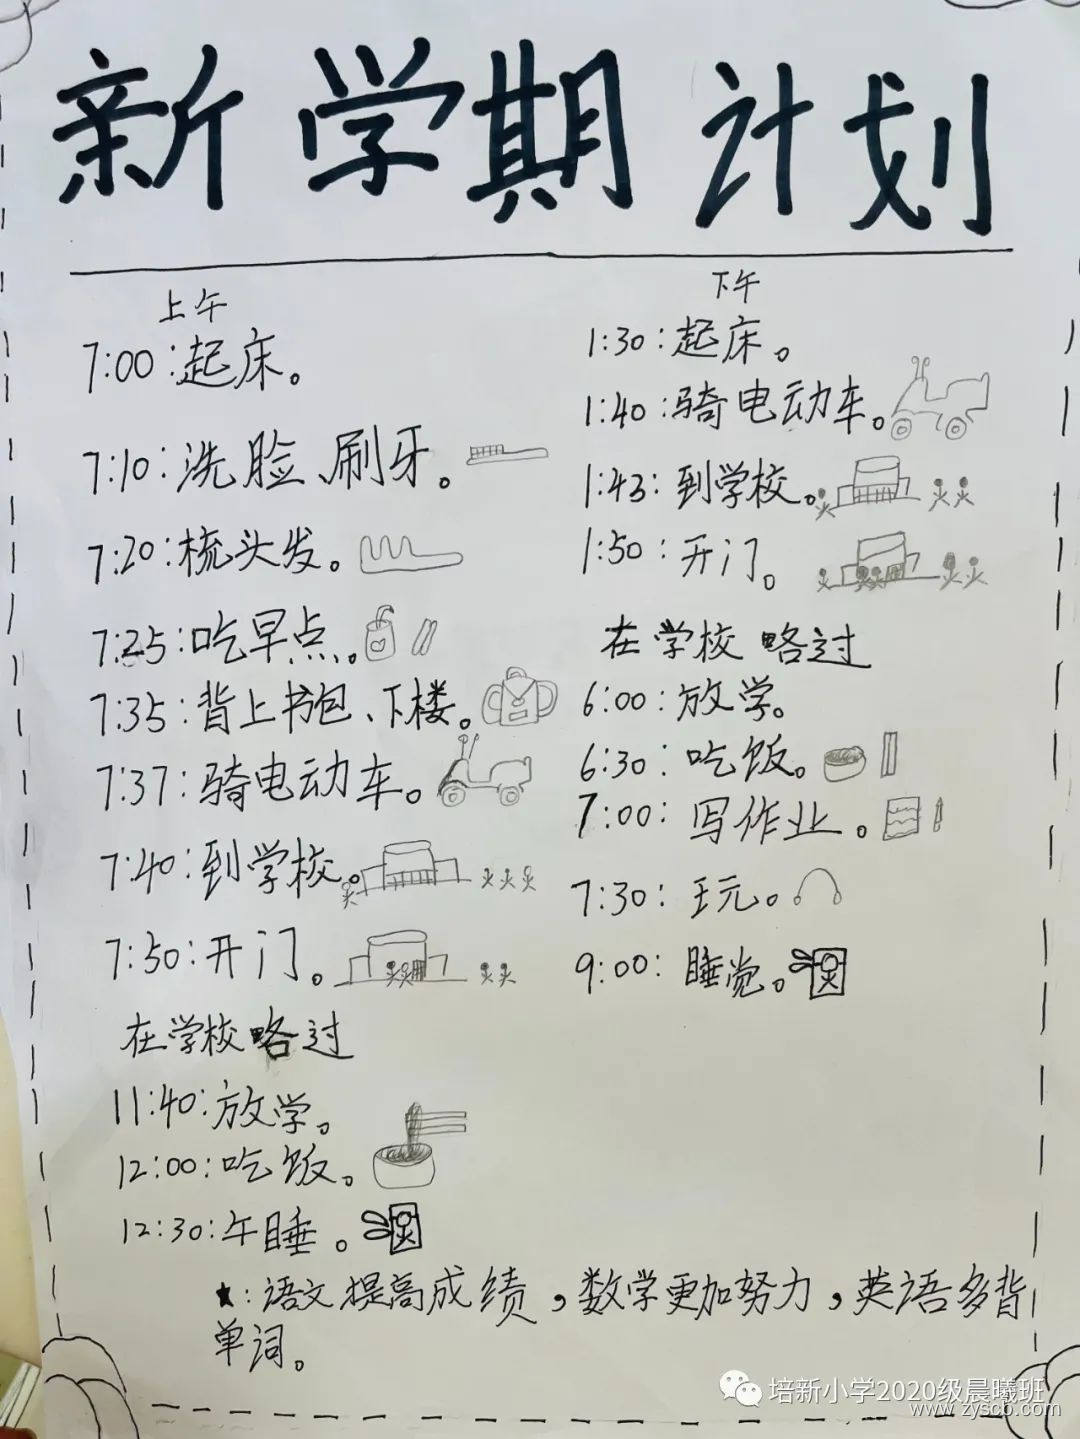 新学期计划
上午
7:00:起床。
7:10:洗脸、刷牙。
7:20:梳头发。
7:25:吃早点。
7:35:背上书包、下楼。
7:37:骑电动车。
7:40:到学校。
7:50:开门。
在学校略过
11:40:放学。
12:00:吃饭。
12:30:午睡。
下午
1:30:起床。
1:40:骑电动车。
1:43:到学校。
1:50:开门。
在学校略过
6:00:放学。
6:30:吃饭。
7:00:写作业。
7:30:玩。
9:00:睡觉。
★:语文提高成绩,数学更加努力,英语多背
单词。
培新小学2020级晨曦班
www.zyscb.com